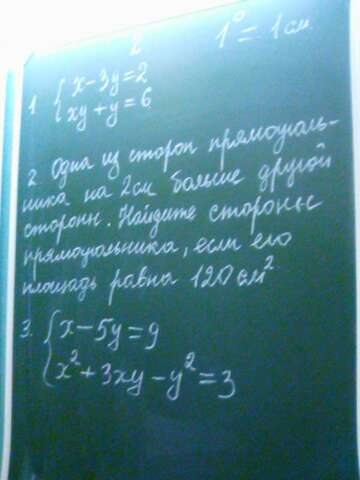 2 1° = 1 см
1. { x - 3y = 2
xy + y = 6
2 Одна из сторон прямоуголь-
ника на 2 см больше другой
стороны. Найдите стороны
прямоугольника, если его
площадь равна 120 см²
3. { x - 5y = 9
x² + 3xy - y² = 3